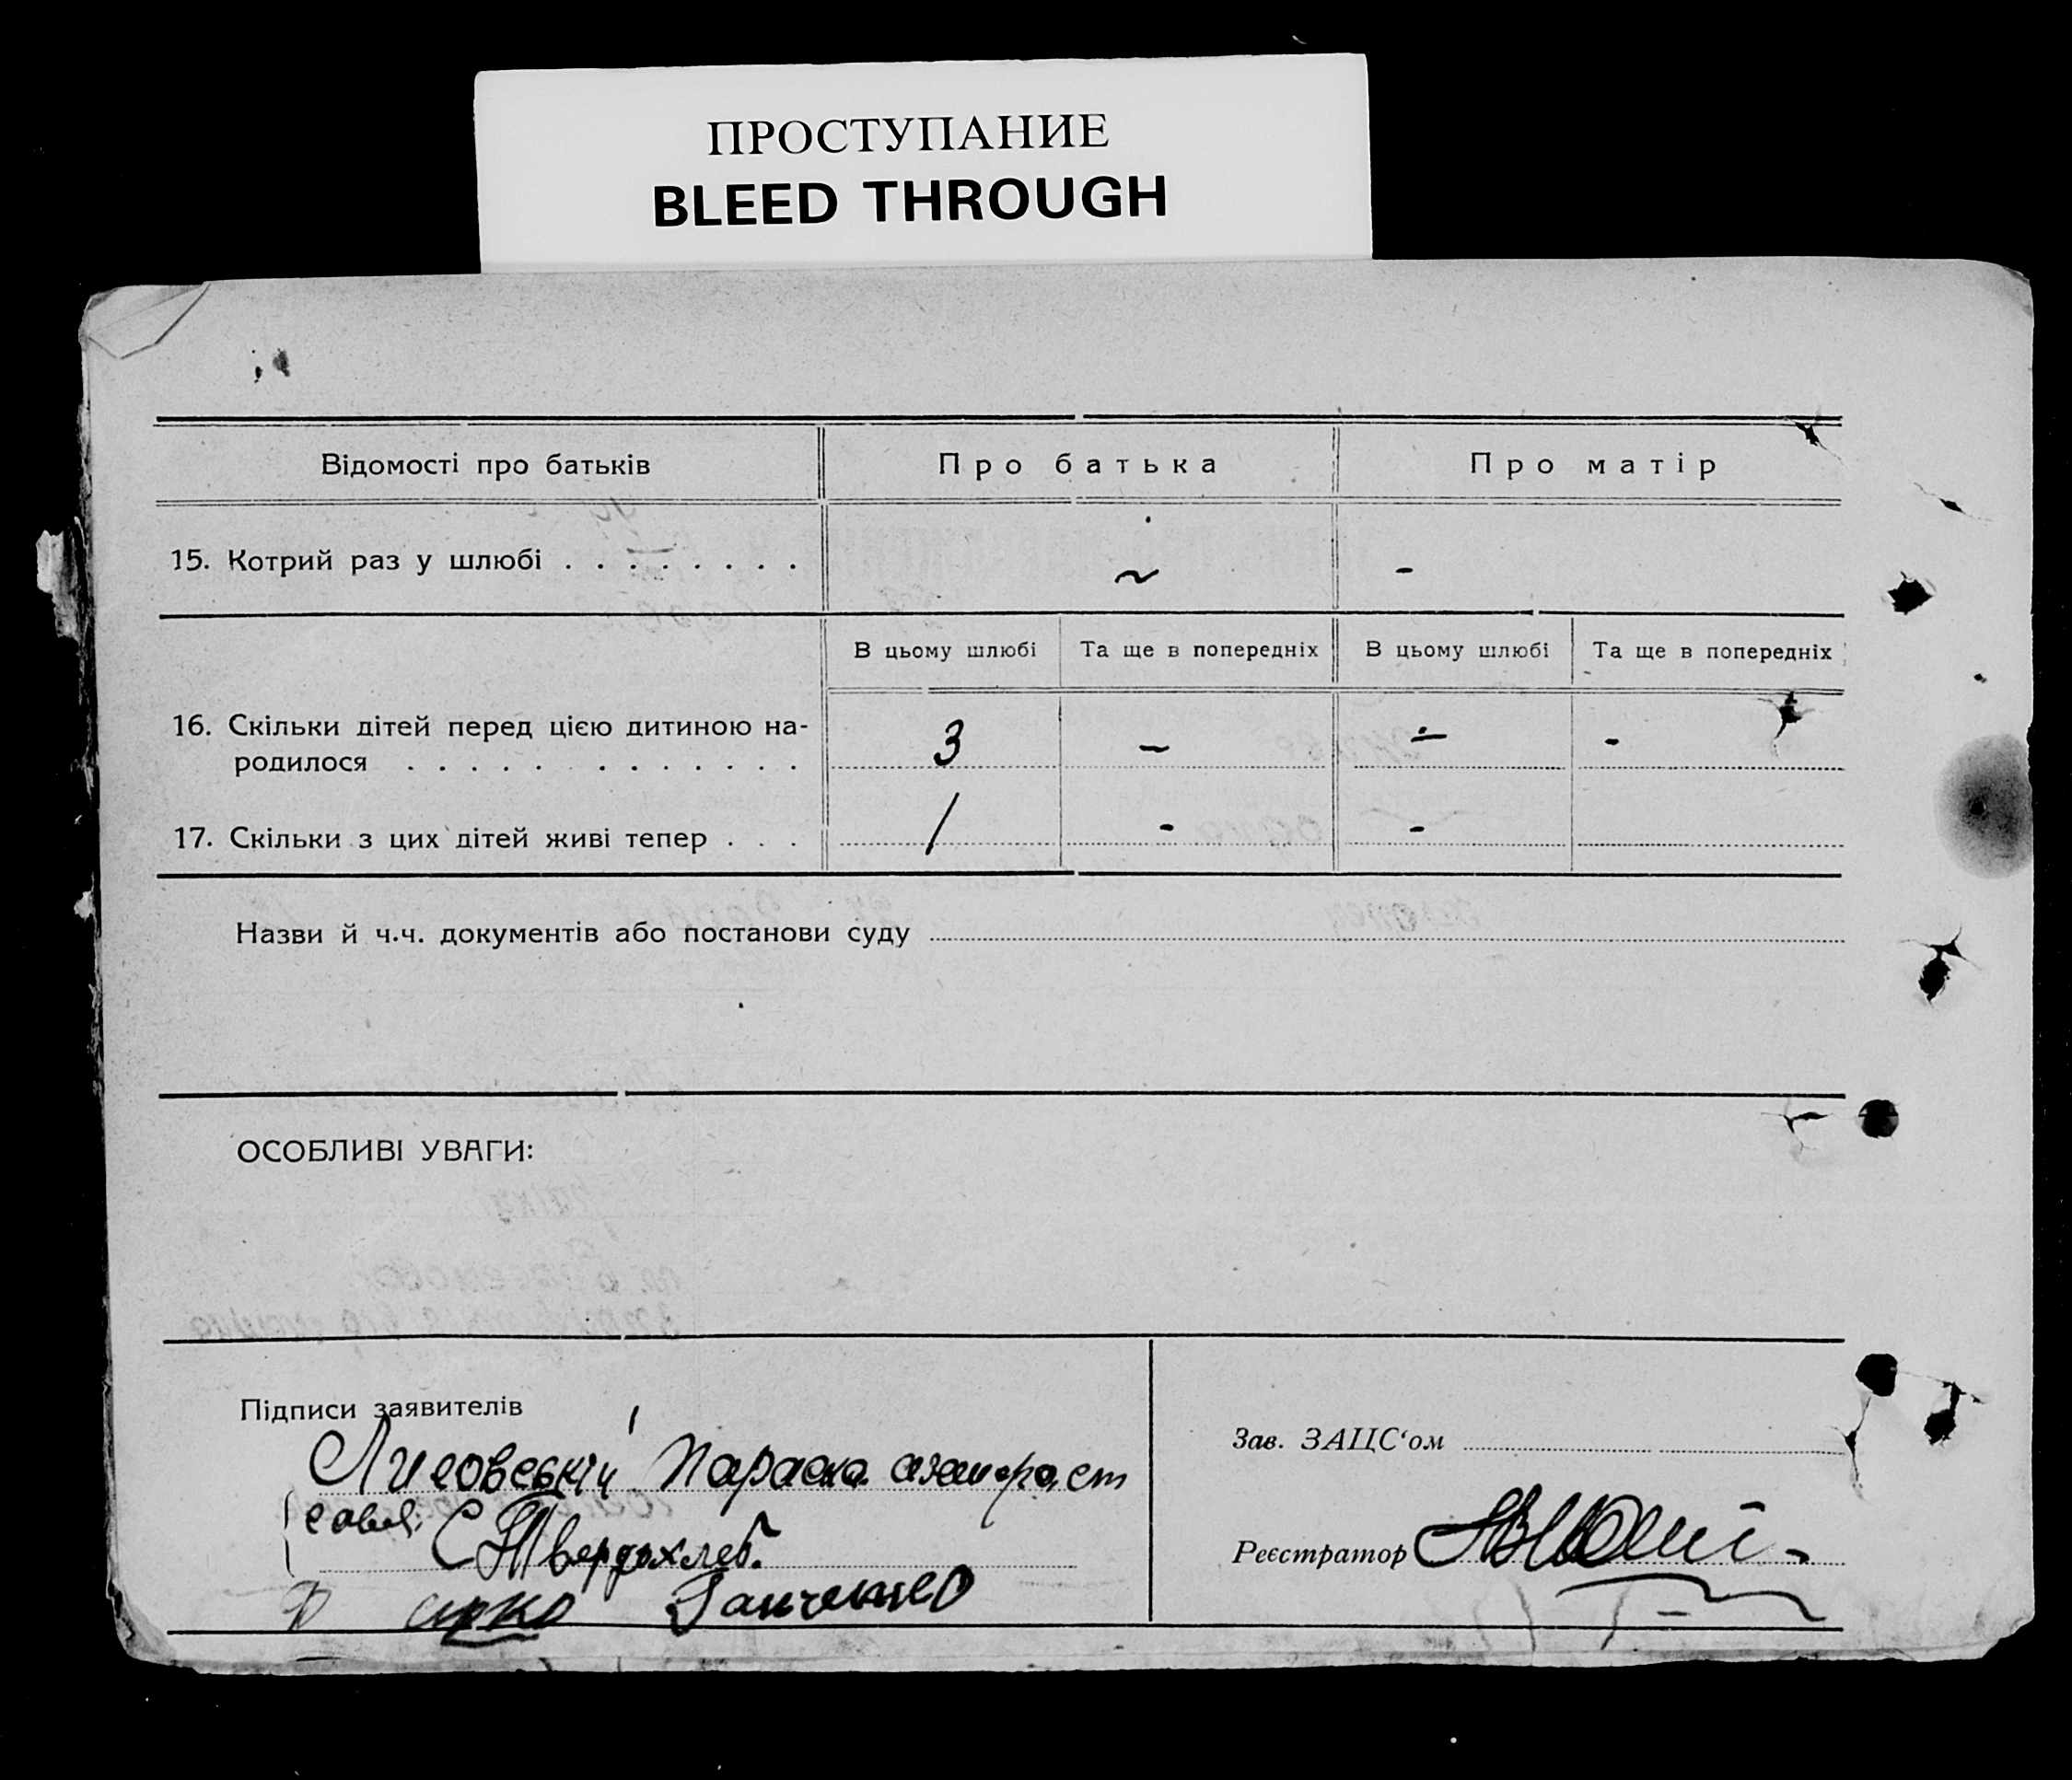 ПРОСТУПАНИЕ
BLEED THROUGH
Відомості про батьків
Про батька
Про матір
15. Котрий раз у шлюбі . . . . . . . .
~
-
В цьому шлюбі
Та ще в попередніх
В цьому шлюбі
Та ще в попередніх
16. Скільки дітей перед цією дитиною на-
родилося . . . . . . . . . . . . .
3
-
-
-
17. Скільки з цих дітей живі тепер . . .
1
-
-
Назви й ч.ч. документів або постанови суду
ОСОБЛИВІ УВАГИ:
Підписи заявителів
Параска
С Твердохлеб.
Ганченко
Зав. ЗАЦС‘ом
Реєстратор